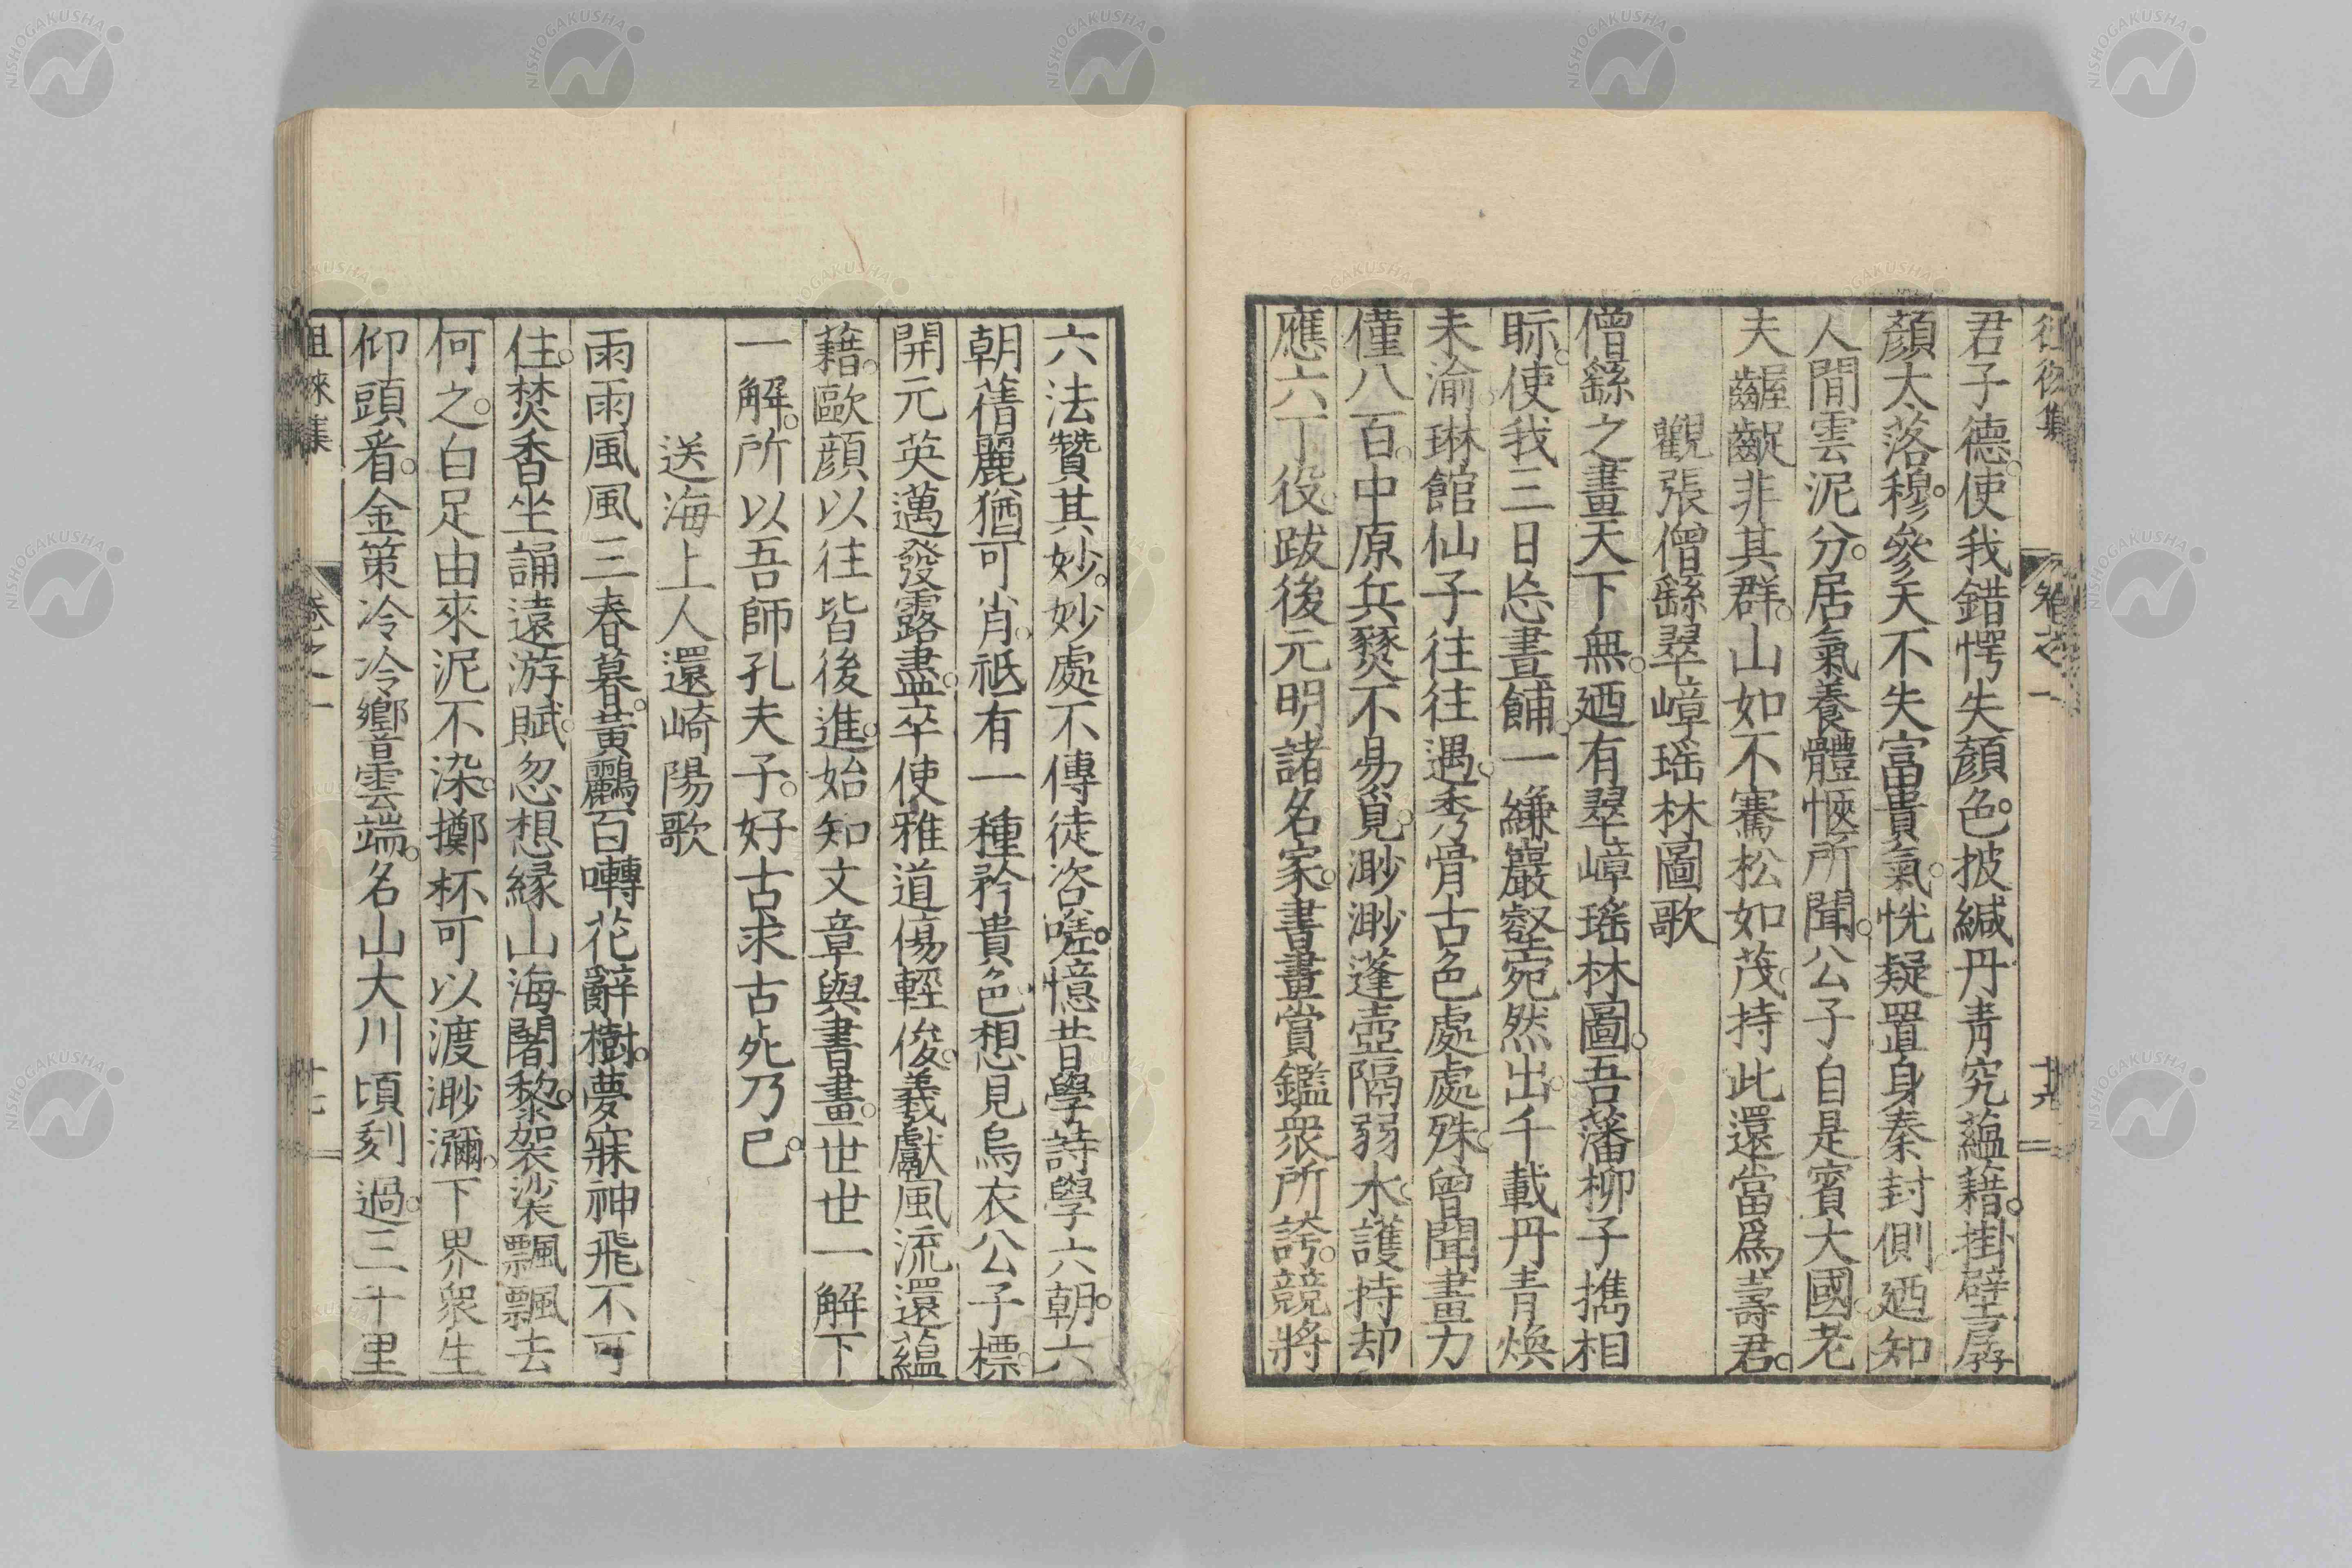 徂徠集 卷之一 十六
君子德。使我錯愕失顏色。披緘丹青究蘊藉。掛壁孱
顏太落穆。參天不失富貴氣。恍疑置身秦封側。廼知
人間雲泥分。居氣養體愜所聞。公子自是賓大國。老
夫齷齪非其群。山如不騫松如茂。持此還當爲壽君。
觀張僧繇翠嶂瑶林圖歌
僧繇之畫天下無。廼有翠嶂瑤林圖。吾藩柳子擕相
眎。使我三日忘晝餔。一縑巖壑宛然出。千載丹青煥
未渝。琳館仙子往往遇。秀骨古色處處殊。曾聞畫力
僅八百。中原兵燹不易覓。渺渺蓬壺隔弱水。護持却
應六丁役。跋後元明諸名家。書畫賞鑑衆所誇。競將
六法贊其妙。妙處不傳徒咨嗟。憶昔學詩學六朝。六
朝蒨麗猶可肖。祗有一種矜貴色。想見烏衣公子標。
開元英邁發露盡。卒使雅道傷輕俊。羲獻風流還蘊
藉。歐顏以往皆後進。始知文章與書畫。世世一解下
一解。所以吾師孔夫子。好古求古死乃已。
送海上人還崎陽歌
雨雨風風三春暮。黃鸝百囀花辭樹。夢寐神飛不可
住。焚香坐誦遠游賦。忽想緣山海闍黎。袈裟飄飄去
何之。白足由來泥不染。擲杯可以渡渺瀰。下界衆生
仰頭看。金策冷冷響雲端。名山大川頃刻過。三千里
徂徠集 卷之一 十七